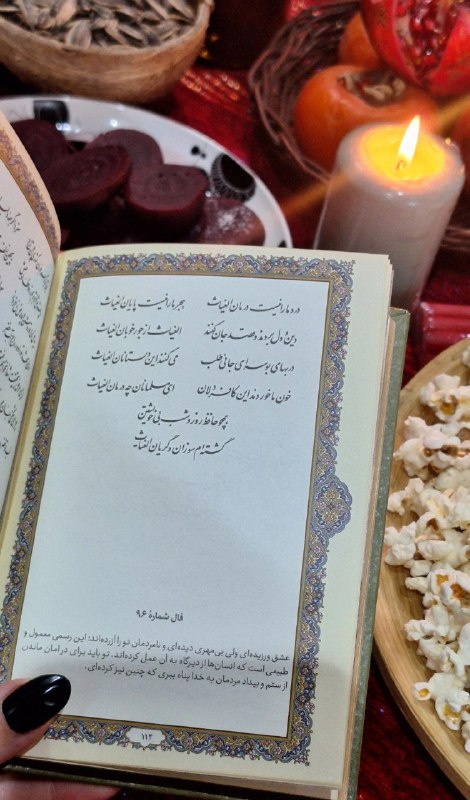 درد ما را نیست درمان الغیاث هجر ما را نیست پایان الغیاث
دین و دل بردند و قصد جان کنند الغیاث از جور خوبان الغیاث
در بهای بوسه‌ای جانی طلب می‌کنند این دلستانان الغیاث
خون ما خوردند این کافر دلان ای مسلمانان چه درمان الغیاث
همچو حافظ روز و شب بی خویشتن
گشته‌ام سوزان و گریان الغیاث
فال شمارهٔ ۹۶
عشق ورزیده‌ای ولی بی‌مهری دیده‌ای و نامردمان تو را آزرده‌اند؛ این رسمی معمول و
طبیعی است که انسان‌ها از دیرگاه به آن عمل کرده‌اند. تو باید برای در امان ماندن
از ستم و بیداد مردمان به خدا پناه ببری که چنین نیز کرده‌ای.
۱۱۳